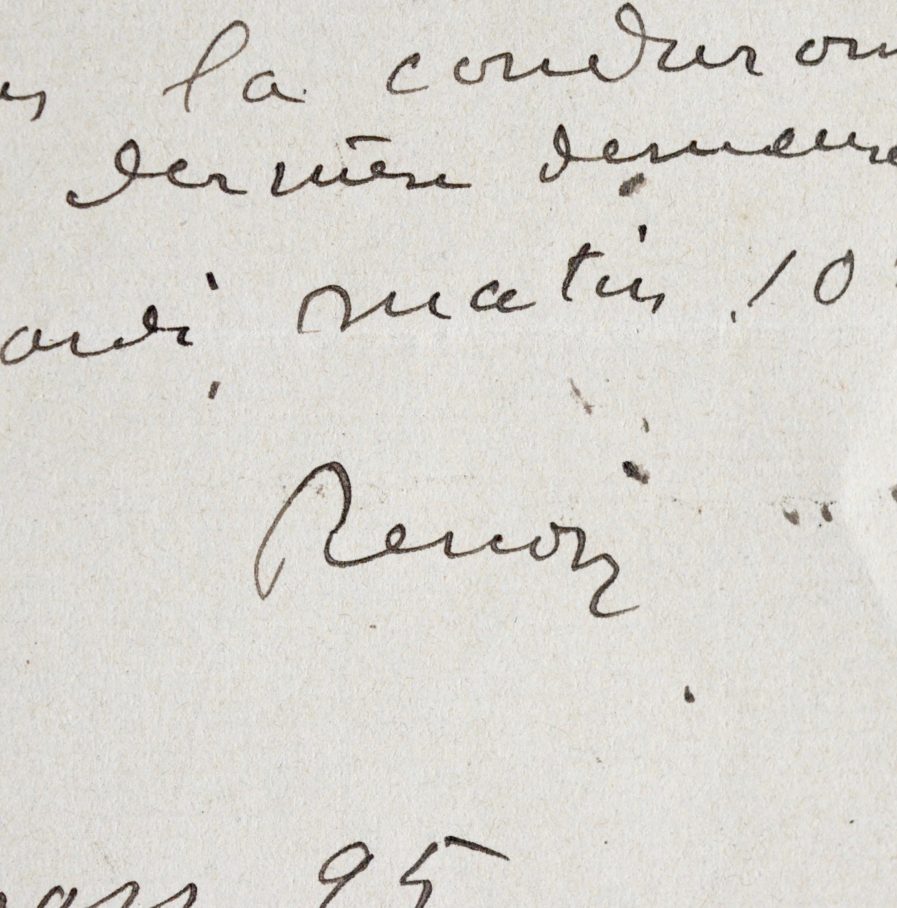 la conduirons
dernière demeure
ardi matin 10
Renoir
mars 95